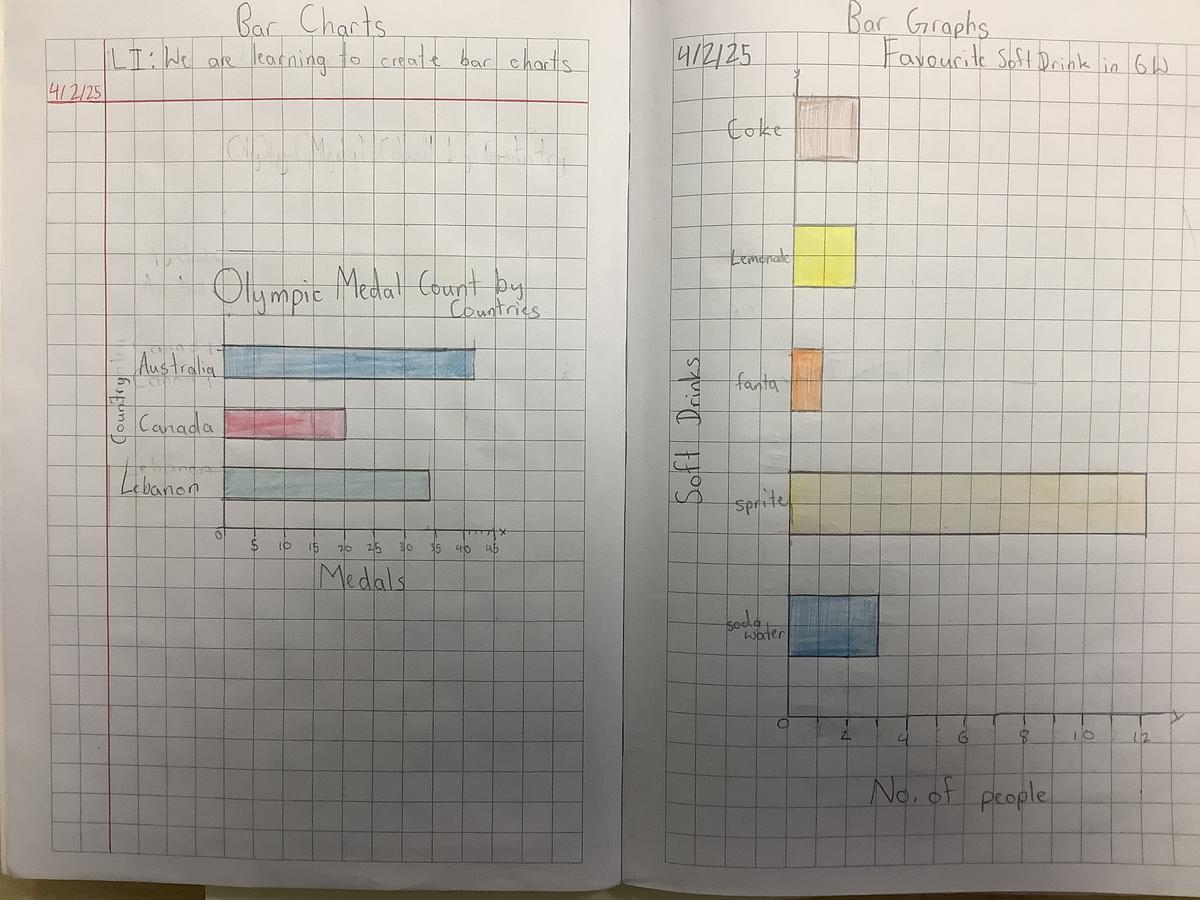 Bar Charts
LI: We are learning to create bar charts
4/2/25
Olympic Medal Count by
Countries
Country
Australia
Canada
Lebanon
0 5 10 15 20 25 30 35 40 45 x
Medals
Bar Graphs
4/2/25 Favourite Soft Drink in 6W
y
Soft Drinks
Coke
Lemonade
fanta
sprite
soda
water
0 2 4 6 8 10 12
No. of people